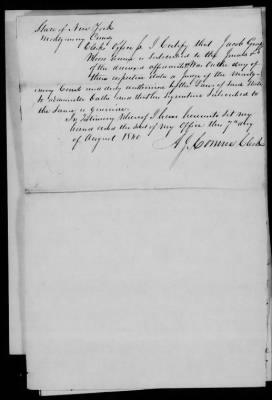 State of New York
Montgomery County
Clerks Office ss I Certify that Jacob
Whose name is subscribed to the Jurats
of the annexed affidavits Was on the day of
their respective date a Judge of the
County Court and duly authorised by the Laws of said State
to administer Oaths and that the signature Subscribed to
the Same is Genuine
In Testimony Whereof I have hereunto Set my
hand and the Seal of my Office this 7th day
of August 1840
A J Comrie Clerk